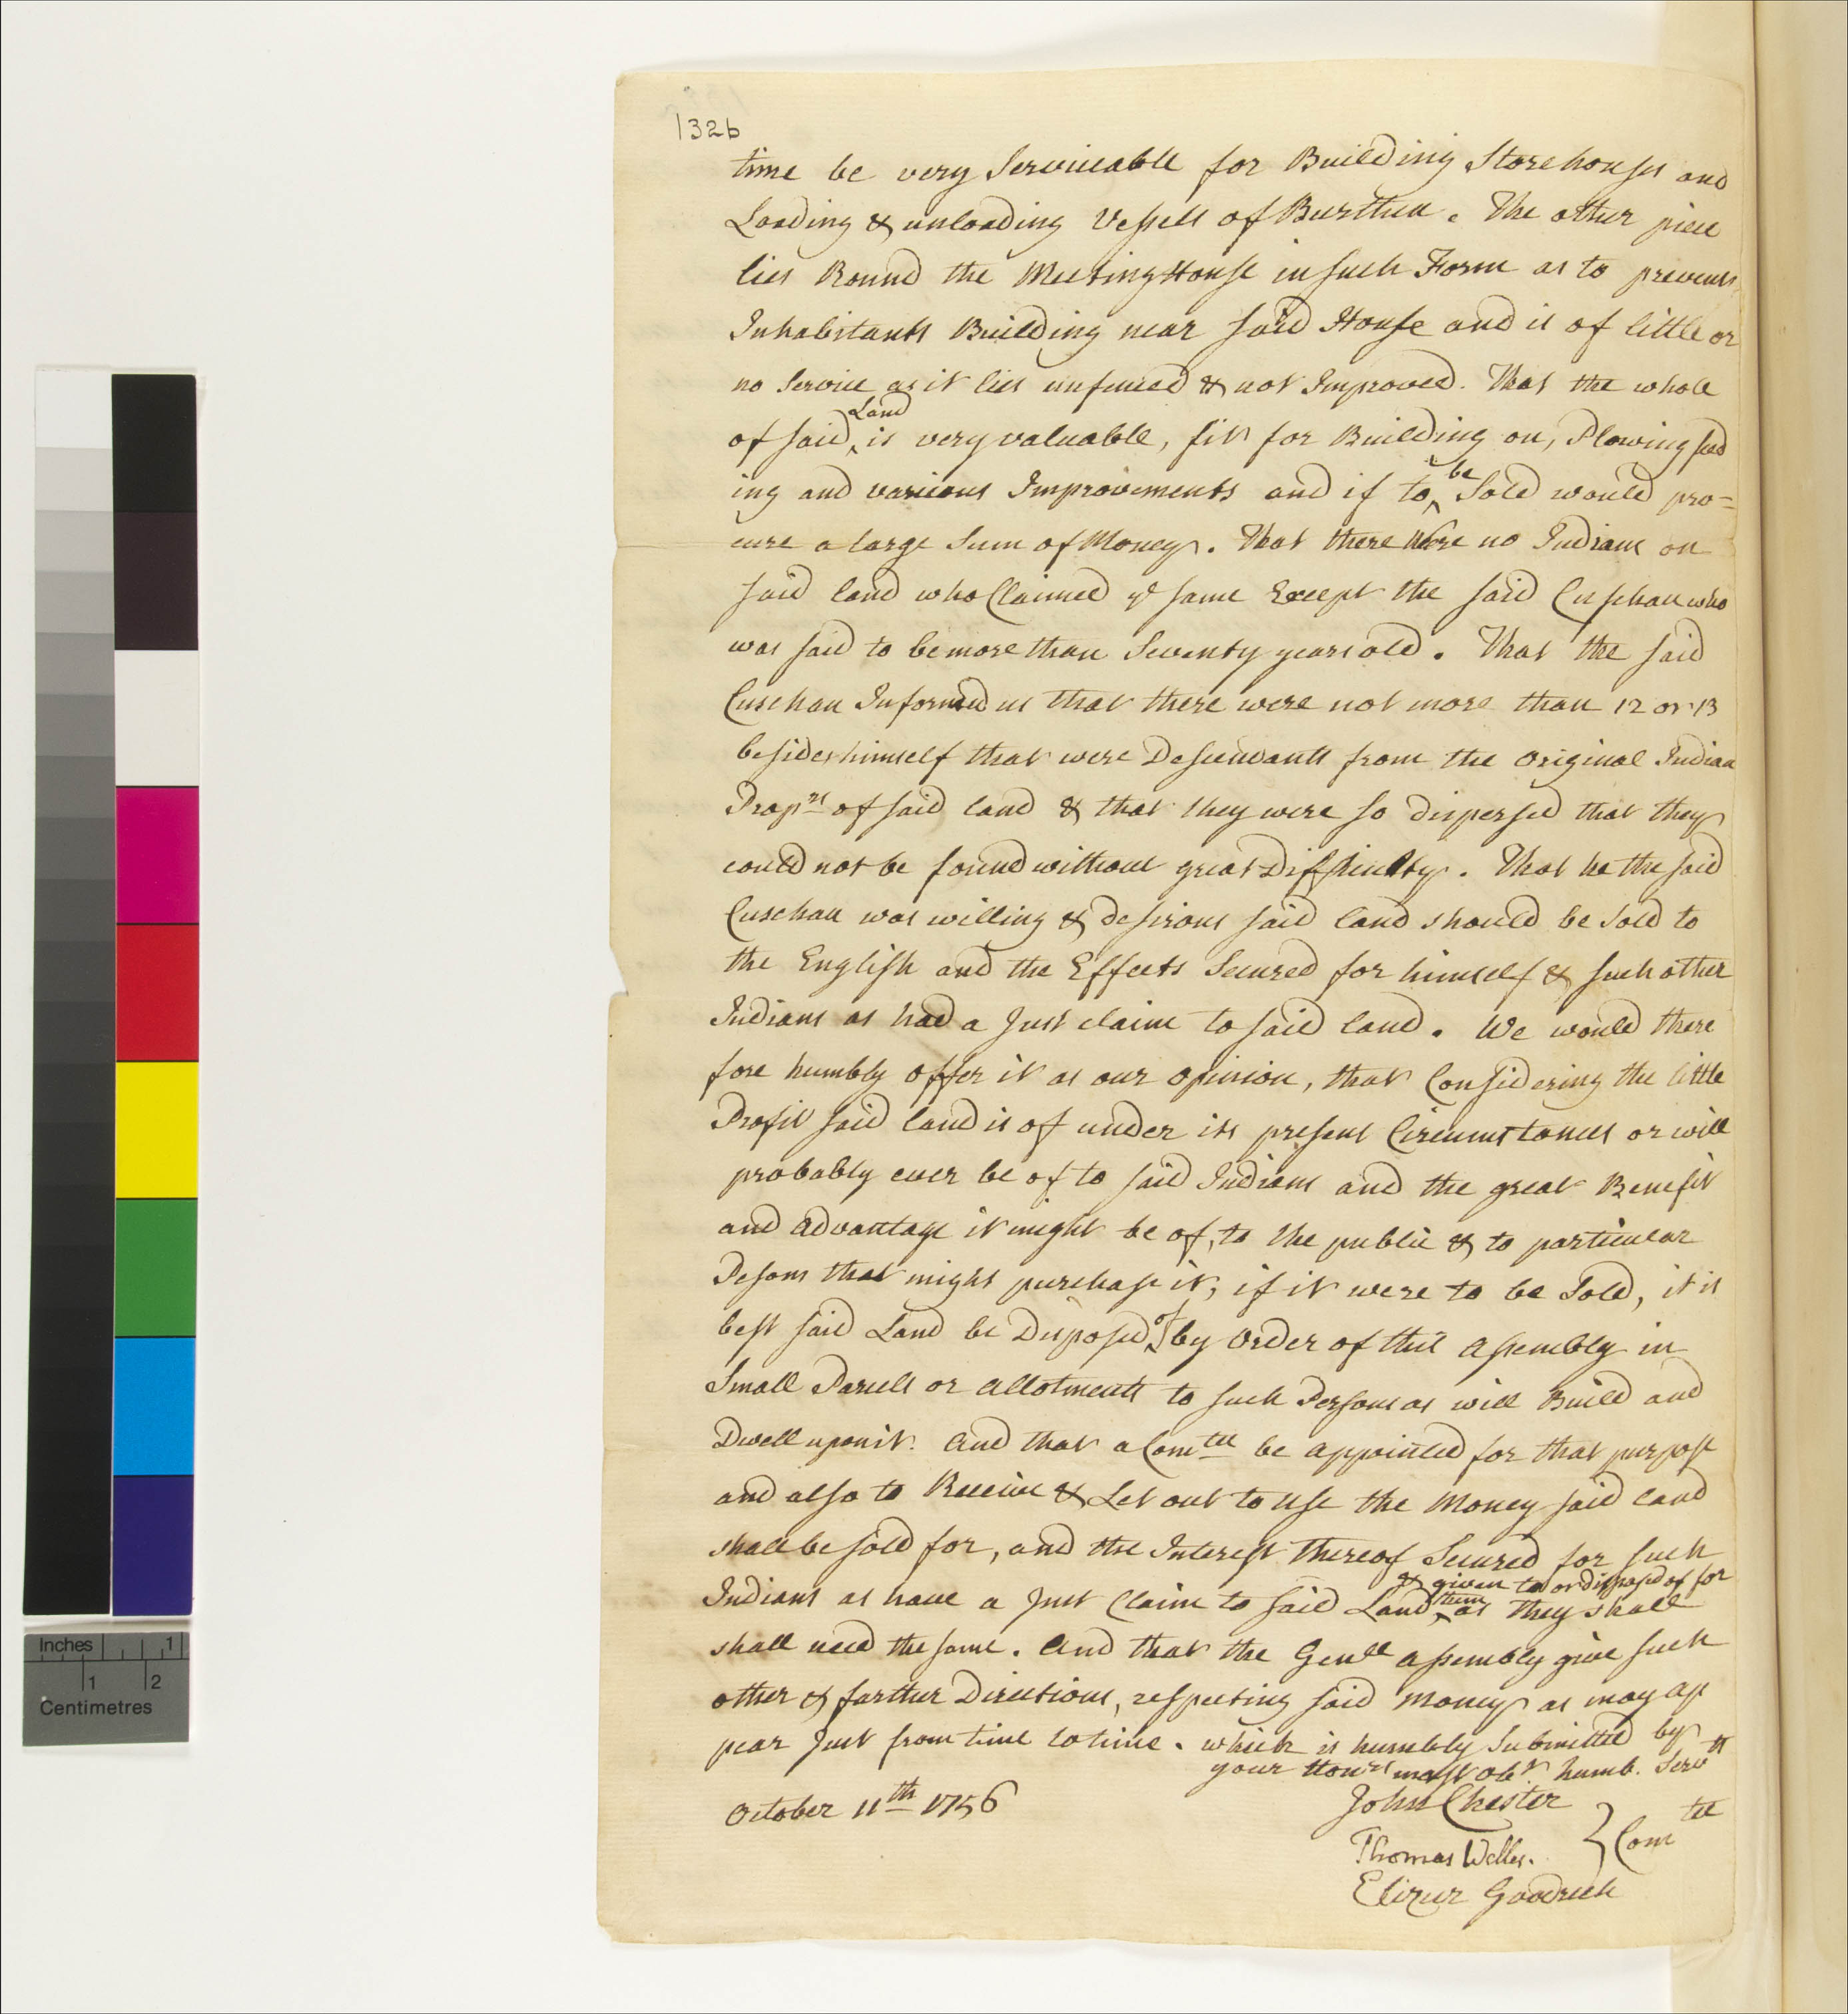 132b
time be very Serviceable for Building Storehouses and
Loading & unloading Vessels of Burthen. The other piece
lies Round the Meeting House in such Form as to prevent
Inhabitants Building near said House and is of little or
no Service as it lies unfenced & not Improved. That the whole
of said Land is very valuable, fit for Building on, Plowing feed
ing and various Improvements and if to be Sold would pro=
cure a large Sum of Money. That there were no Indians on
said land who Claimed ye same Except the said Cuschau who
was said to be more than Seventy years old. That the said
Cuschau Informed us that there were not more than 12 or 13
besides himself that were Descendants from the original Indian
Proprs of said land & that they were so dispersed that they
could not be found without great Difficulty. That he the said
Cuschau was willing & desirous said land should be sold to
the English and the Effects Secured for himself & such other
Indians as had a Just claim to said land. We would there
fore humbly offer it as our opinion, that Considering the little
Profit said land is of under its present Circumstances or will
probably ever be of to said Indians and the great Benefit
and advantage it might be of, to the public & to particular
Pesons that might purchase it, if it were to be Sold, it is
best said Land be Disposed of by order of this Assembly in
Small Parcells or allotments to such Persons as will Build and
Dwell upon it. And that a Comtee be appointed for that purpose
and also to Receive & Let out to use the Money said land
shall be sold for, and the Interest thereof Secured for such
Indians as have a Just Claim to said Land & given to or disposed of for them as they shall
shall need the same. And that the Genll Assembly give such
other & farther Directions, respecting said Money as may ap
pear Just from time to time. which is humbly Submitted by
your Honrs most Obt humb. Servts
October 11th 1756
John Chester
Thomas Welles.
} Comtee
Elizur Goodrich
Inches 1
1 2
Centimetres